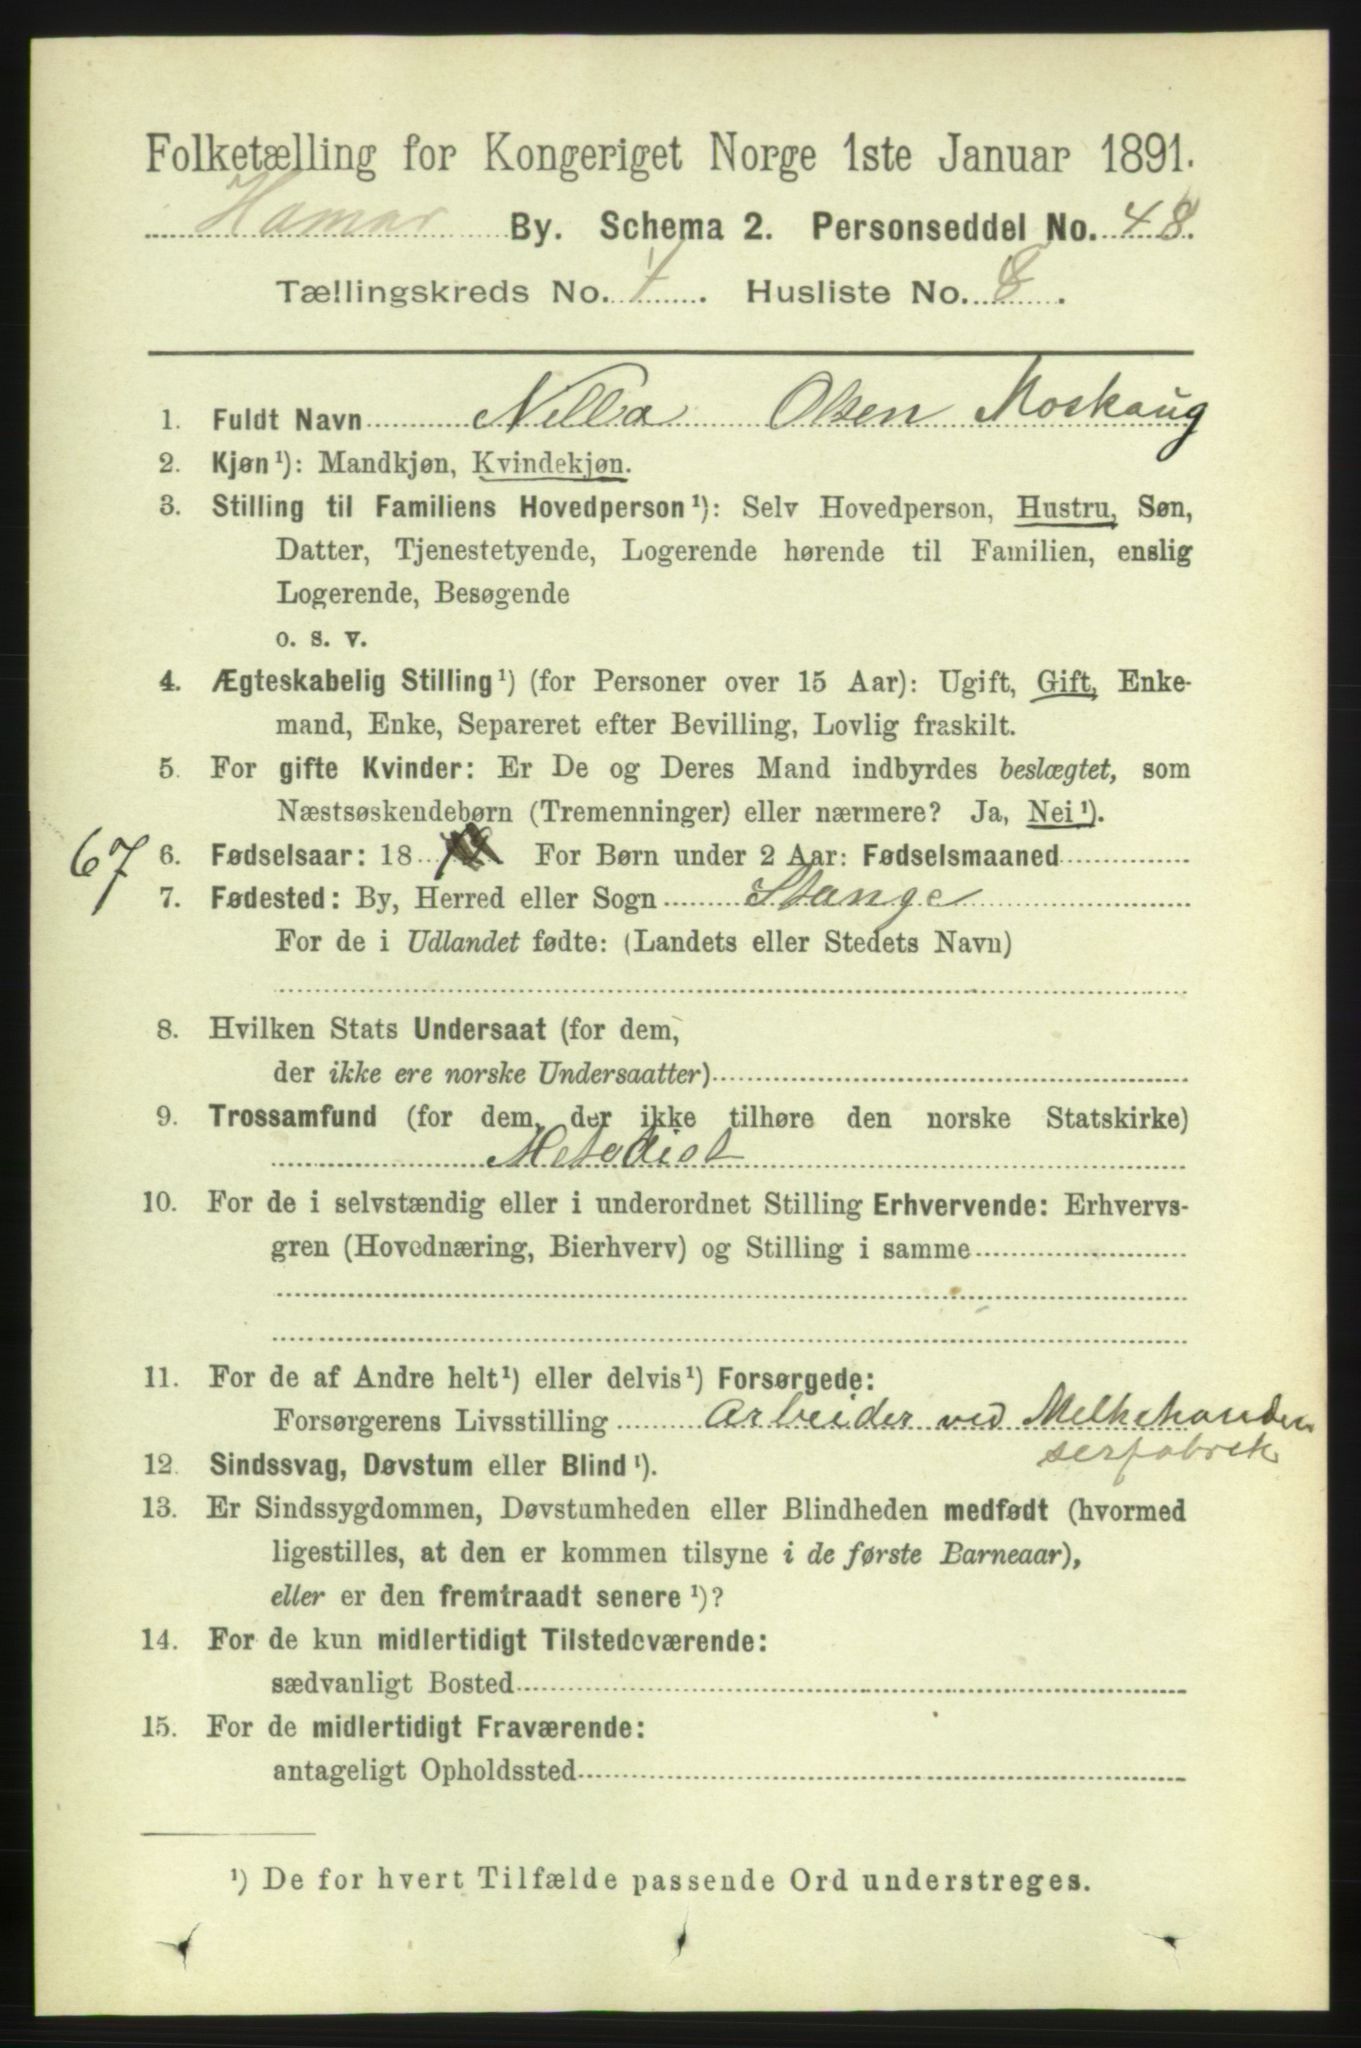 Folketælling for Kongeriget Norge 1ste Januar 1891.
Hamar By. Schema 2. Personseddel No. 48.
Tællingskreds No. 1. Husliste No. 8.
1. Fuldt Navn Nella Olsen Moskaug
2. Kjøn¹): Mandkjøn, Kvindekjøn.
3. Stilling til Familiens Hovedperson¹): Selv Hovedperson, Hustru, Søn,
Datter, Tjenestetyende, Logerende hørende til Familien, enslig
Logerende, Besøgende
o. s. v.
4. Ægteskabelig Stilling¹) (for Personer over 15 Aar): Ugift, Gift, Enke-
mand, Enke, Separeret efter Bevilling, Lovlig fraskilt.
5. For gifte Kvinder: Er De og Deres Mand indbyrdes beslægtet, som
Næstsøskendebørn (Tremenninger) eller nærmere? Ja, Nei¹).
67 6. Fødselsaar: 18 For Børn under 2 Aar: Fødselsmaaned
7. Fødested: By, Herred eller Sogn Stange
For de i Udlandet fødte: (Landets eller Stedets Navn)
8. Hvilken Stats Undersaat (for dem,
der ikke ere norske Undersaatter)
9. Trossamfund (for dem, der ikke tilhøre den norske Statskirke)
Metodist
10. For de i selvstændig eller i underordnet Stilling Erhvervende: Erhvervs-
gren (Hovednæring, Bierhverv) og Stilling i samme
11. For de af Andre helt¹) eller delvis¹) Forsørgede:
Forsørgerens Livsstilling Arbeider ved Melkekonden
serfabrik
12. Sindssvag, Døvstum eller Blind¹).
13. Er Sindssygdommen, Døvstumheden eller Blindheden medfødt (hvormed
ligestilles, at den er kommen tilsyne i de første Barneaar),
eller er den fremtraadt senere¹)?
14. For de kun midlertidigt Tilstedeværende:
sædvanligt Bosted
15. For de midlertidigt Fraværende:
antageligt Opholdssted
¹) De for hvert Tilfælde passende Ord understreges.